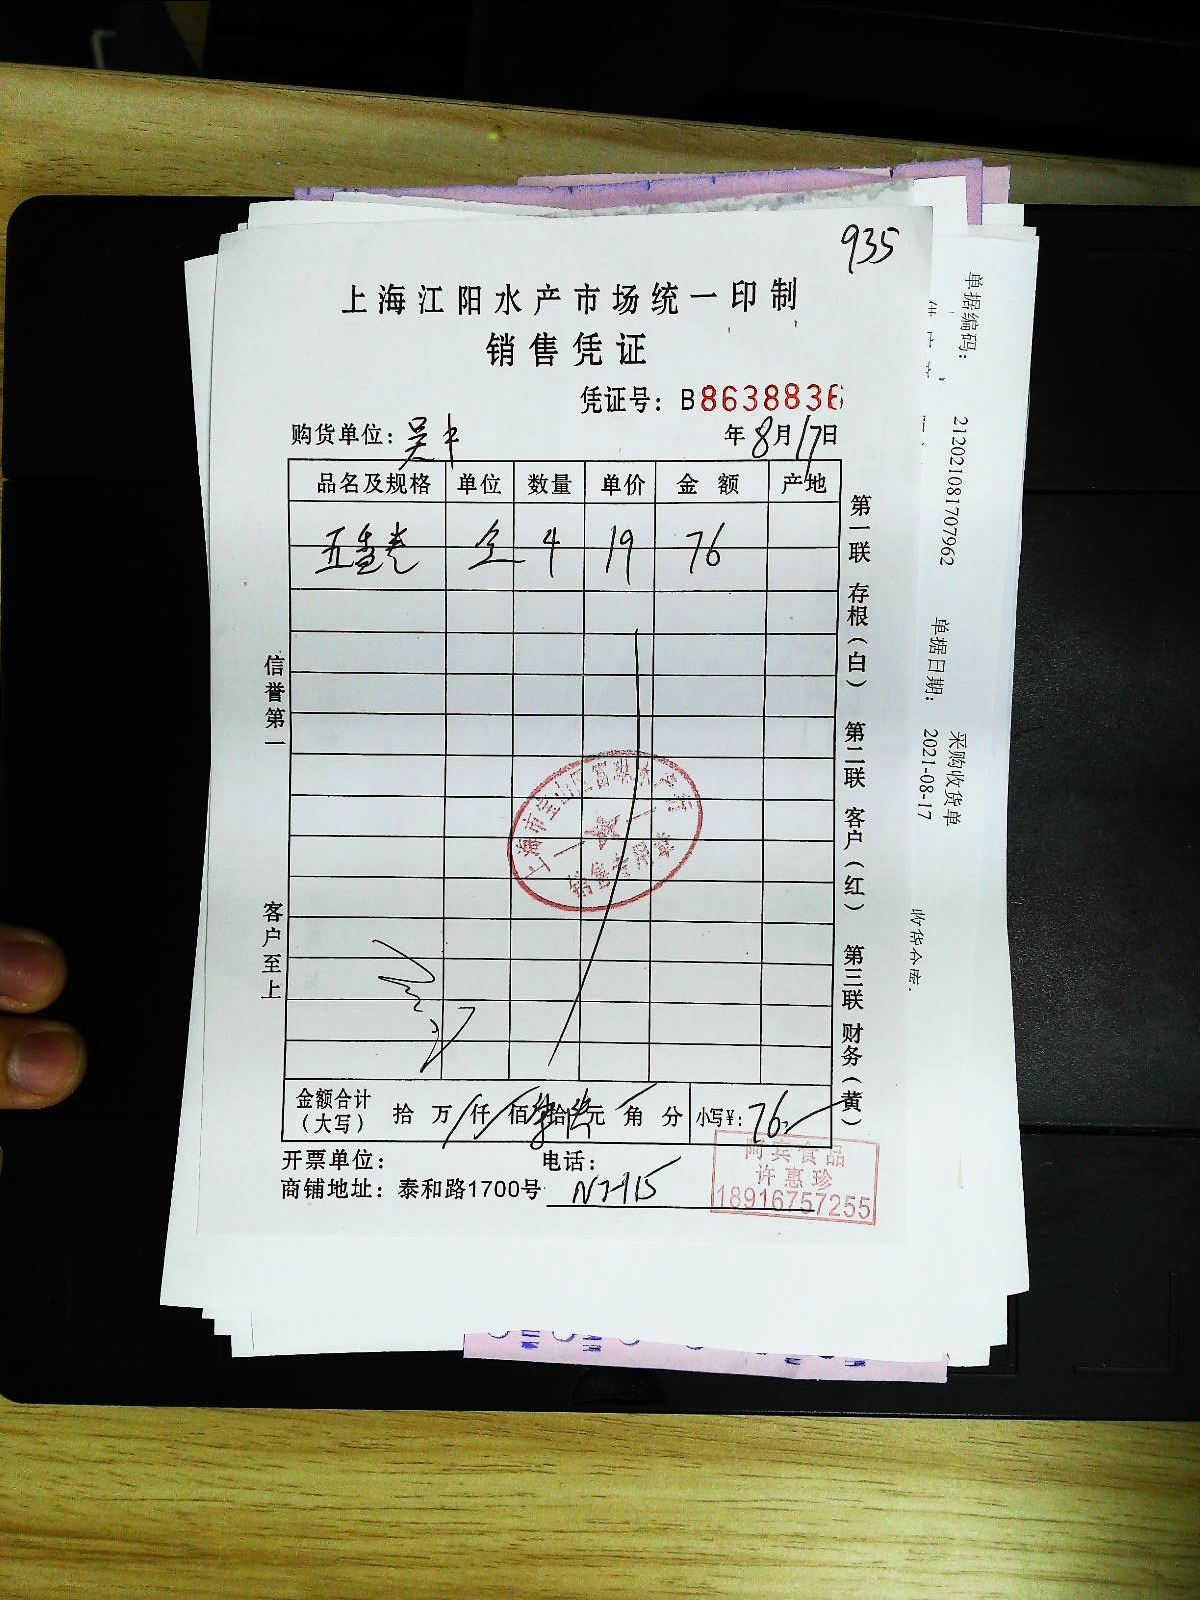 935
上海江阳水产市场统一印制
销售凭证
凭证号：B8638836
购货单位：吴中 年8月17日
品名及规格 单位 数量 单价 金额 产地
五香卷 4 19 76
第一联 存根（白） 第二联 客户（红） 第三联 财务（黄）
信誉第一
客户至上
上海市宝山区
销售专用章
金额合计（大写） 拾 万 仟 佰 柒拾陆元 角 分 小写¥：76
开票单位： 电话：
商铺地址：泰和路1700号
阿宾食品
许惠珍
18916757255
采购收货单
单据编码： 212021081707962 单据日期： 2021-08-17